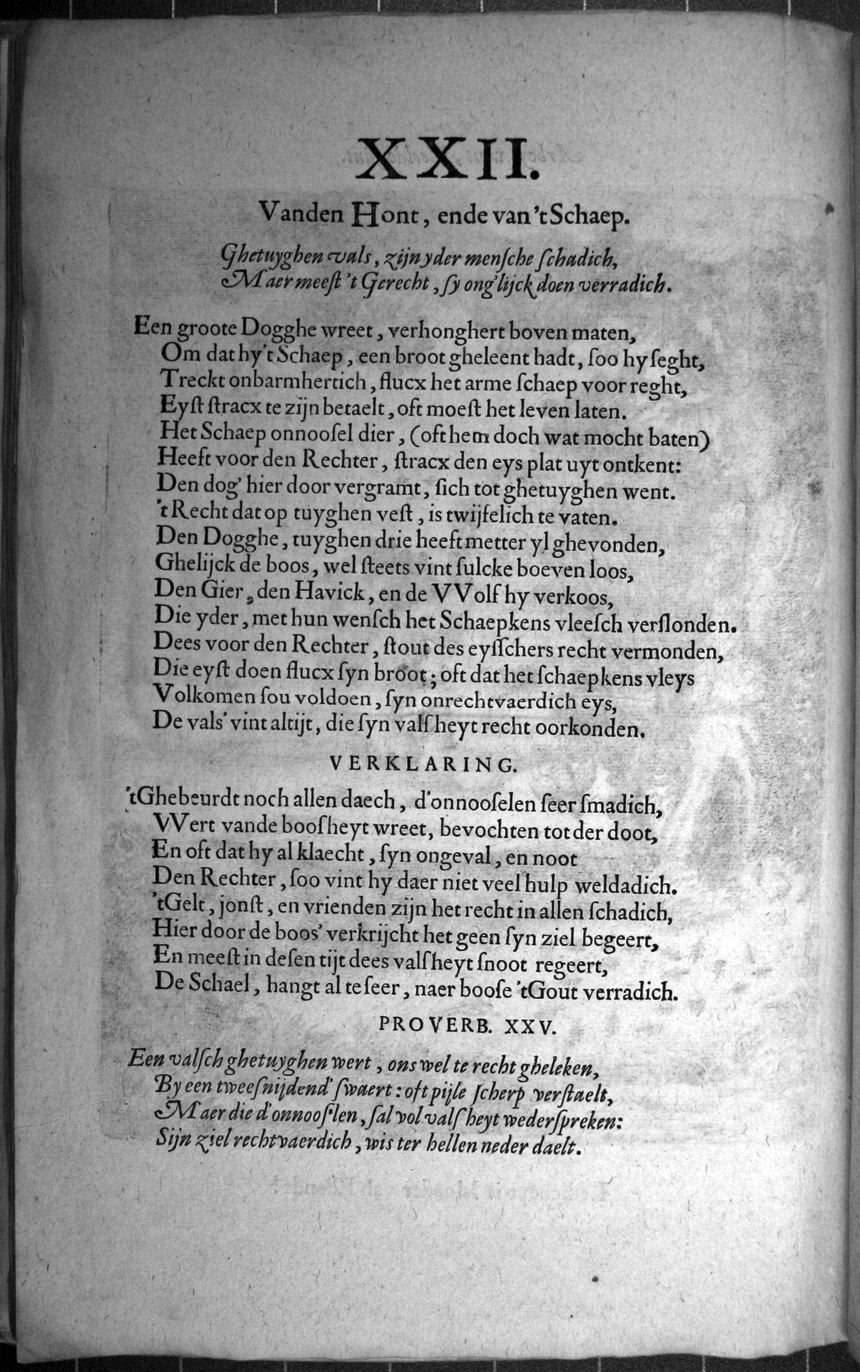 XXII.
Vanden Hont, ende van 't Schaep.
Ghetuyghen vals, zijn yder menſche ſchadich,
Maer meeſt 't Gerecht, ſy ong'lijck doen verradich.
Een groote Dogghe wreet, verhonghert boven maten,
Om dat hy 't Schaep, een broot gheleent hadt, ſoo hy ſeght,
Treckt onbarmhertich, flucx het arme ſchaep voor reght,
Eyſt ſtracx te zijn betaelt, oft moeſt het leven laten.
Het Schaep onnooſel dier, (oft hem doch wat mocht baten)
Heeft voor den Rechter, ſtracx den eys plat uyt ontkent:
Den dog' hier door vergramt, ſich tot ghetuyghen went.
't Recht dat op tuyghen veſt, is twijfelich te vaten.
Den Dogghe, tuyghen drie heeft metter yl ghevonden,
Ghelijck de boos, wel ſteets vint ſulcke boeven loos,
Den Gier, den Havick, en de VVolf hy verkoos,
Die yder, met hun wenſch het Schaepkens vleeſch verſlonden.
Dees voor den Rechter, ſtout des eyſſchers recht vermonden,
Die eyſt doen flucx ſyn broot; oft dat het ſchaepkens vleys
Volkomen ſou voldoen, ſyn onrechtvaerdich eys,
De vals' vint altijt, die ſyn valſheyt recht oorkonden.
VERKLARING.
'tGhebeurdt noch allen daech, d'onnooſelen ſeer ſmadich,
VVert vande boosheyt wreet, bevochten tot der doot,
En oft dat hy al klaecht, ſyn ongeval, en noot
Den Rechter, ſoo vint hy daer niet veel hulp weldadich.
'tGelt, jonſt, en vrienden zijn het recht in allen ſchadich,
Hier door de boos' verkrijcht het geen ſyn ziel begeert,
En meeſt in deſen tijt dees valſheyt ſnoot regeert,
De Schael, hangt al te ſeer, naer booſe 'tGout verradich.
PROVERB. XXV.
Een valſch ghetuyghen wert, ons wel te recht gheleken,
By een tweeſnijdend' ſwaert: oft pijle ſcherp verſtaelt,
Maer die d'onnooſlen, ſal vol valſheyt wederſpreken:
Sijn ziel rechtvaerdich, wis ter hellen neder daelt.